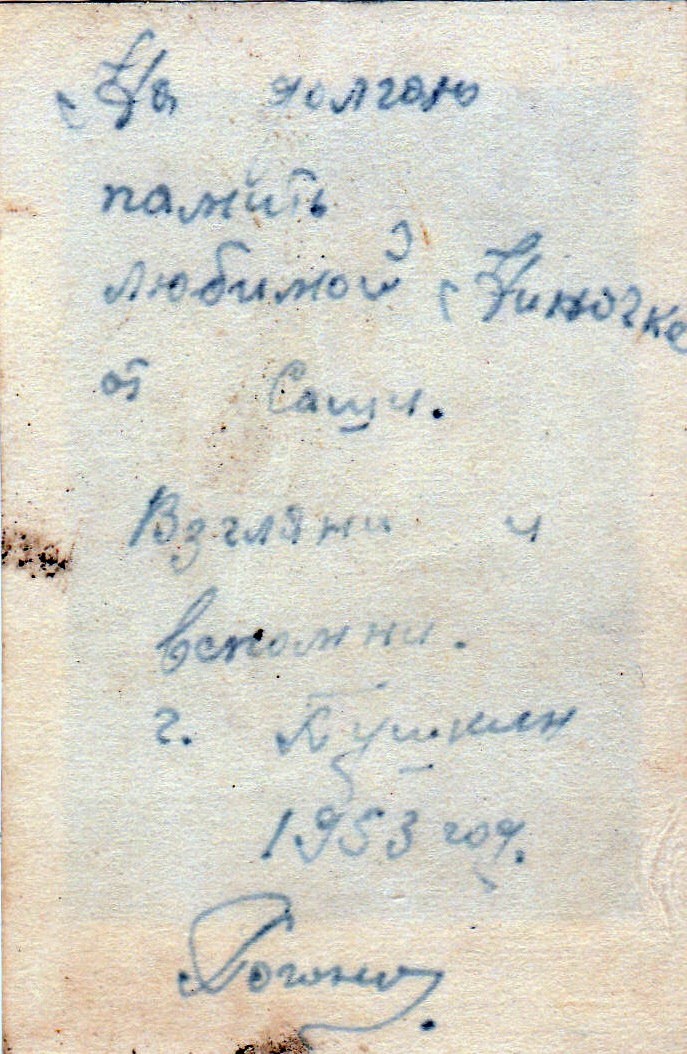 На долгою
память
любимой Ниночке
от Саши.
Взгляни и
вспомни.
г. Пушкин
1953 год.